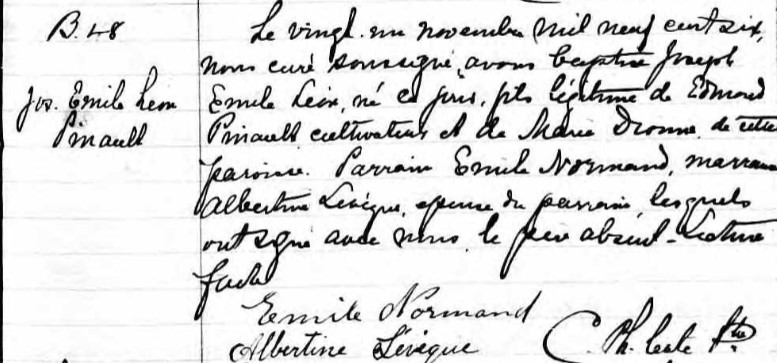 B.48
Jos. Emile Léon
Pinault
Le vingt-un novembre mil neuf cent six,
nous curé soussigné, avons baptisé Joseph
Emile Léon, né ce jour, fils légitime de Edmond
Pinault cultivateur et de Marie Dionne de cette
paroisse. Parrain Emile Normand, marraine
Albertine Lévêque, épouse du parrain, lesquels
ont signé avec nous, le père absent. Lecture
faite
Emile Normand
Albertine Lévêque
C. Ph. Ptre